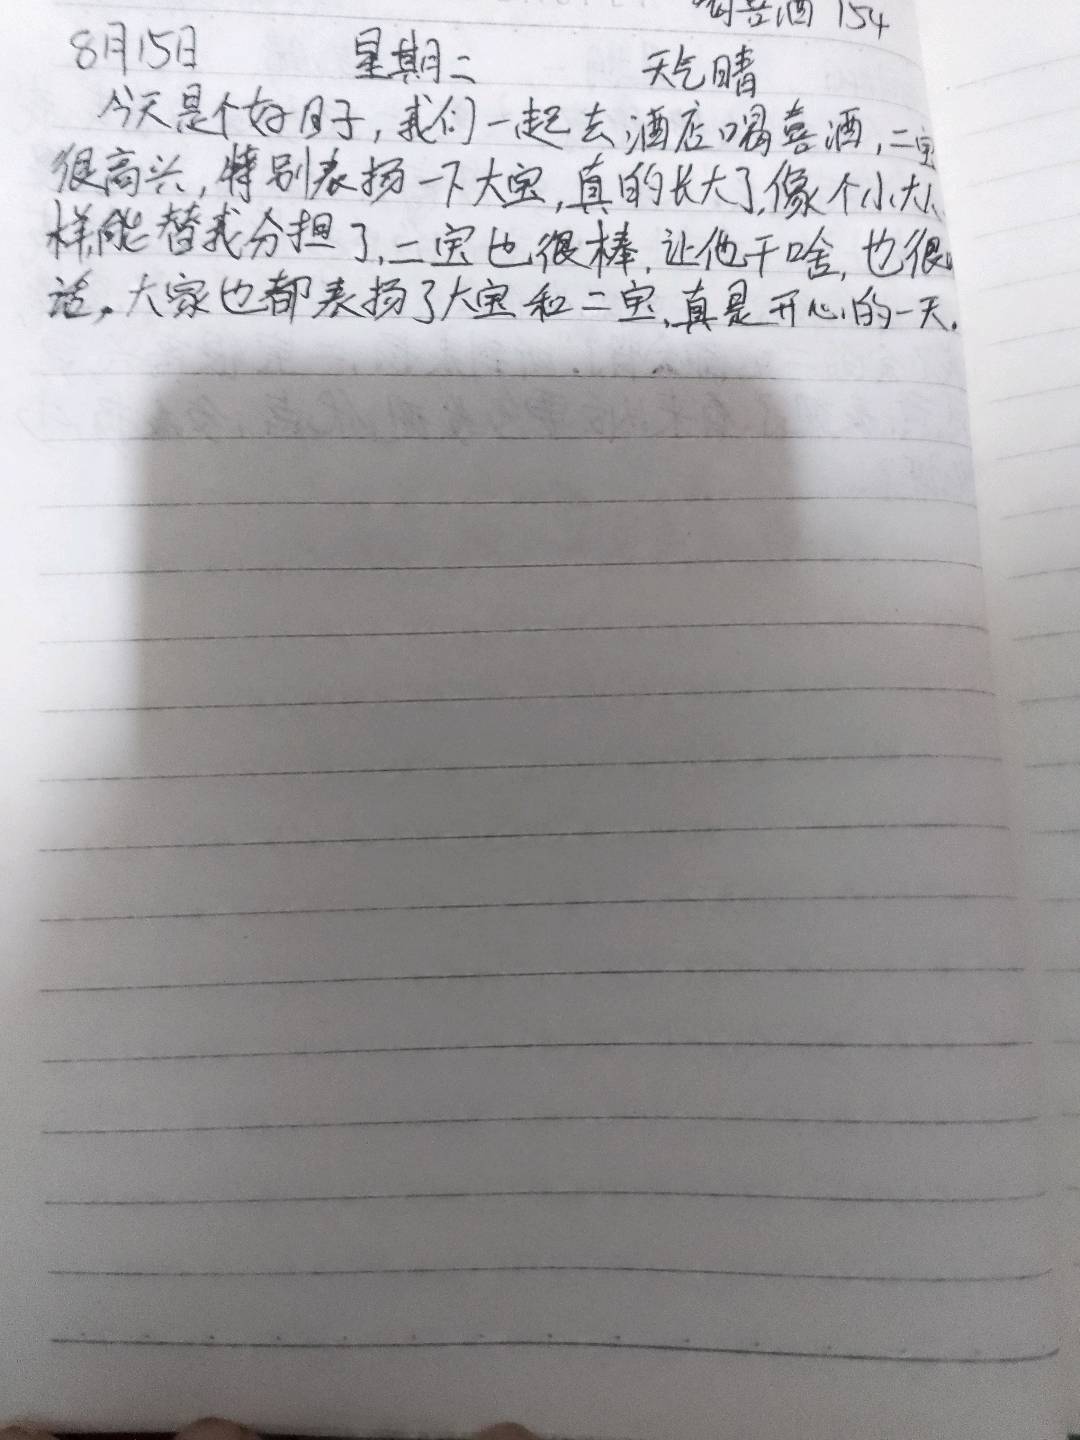 喜酒 154
8月15日 星期二 天气晴
今天是个好日子，我们一起去酒店喝喜酒，二宝
很高兴，特别表扬一下大宝，真的长大了，像个小大
样能替我分担了，二宝也很棒，让他干啥，也很
话。大家也都表扬了大宝和二宝，真是开心的一天。